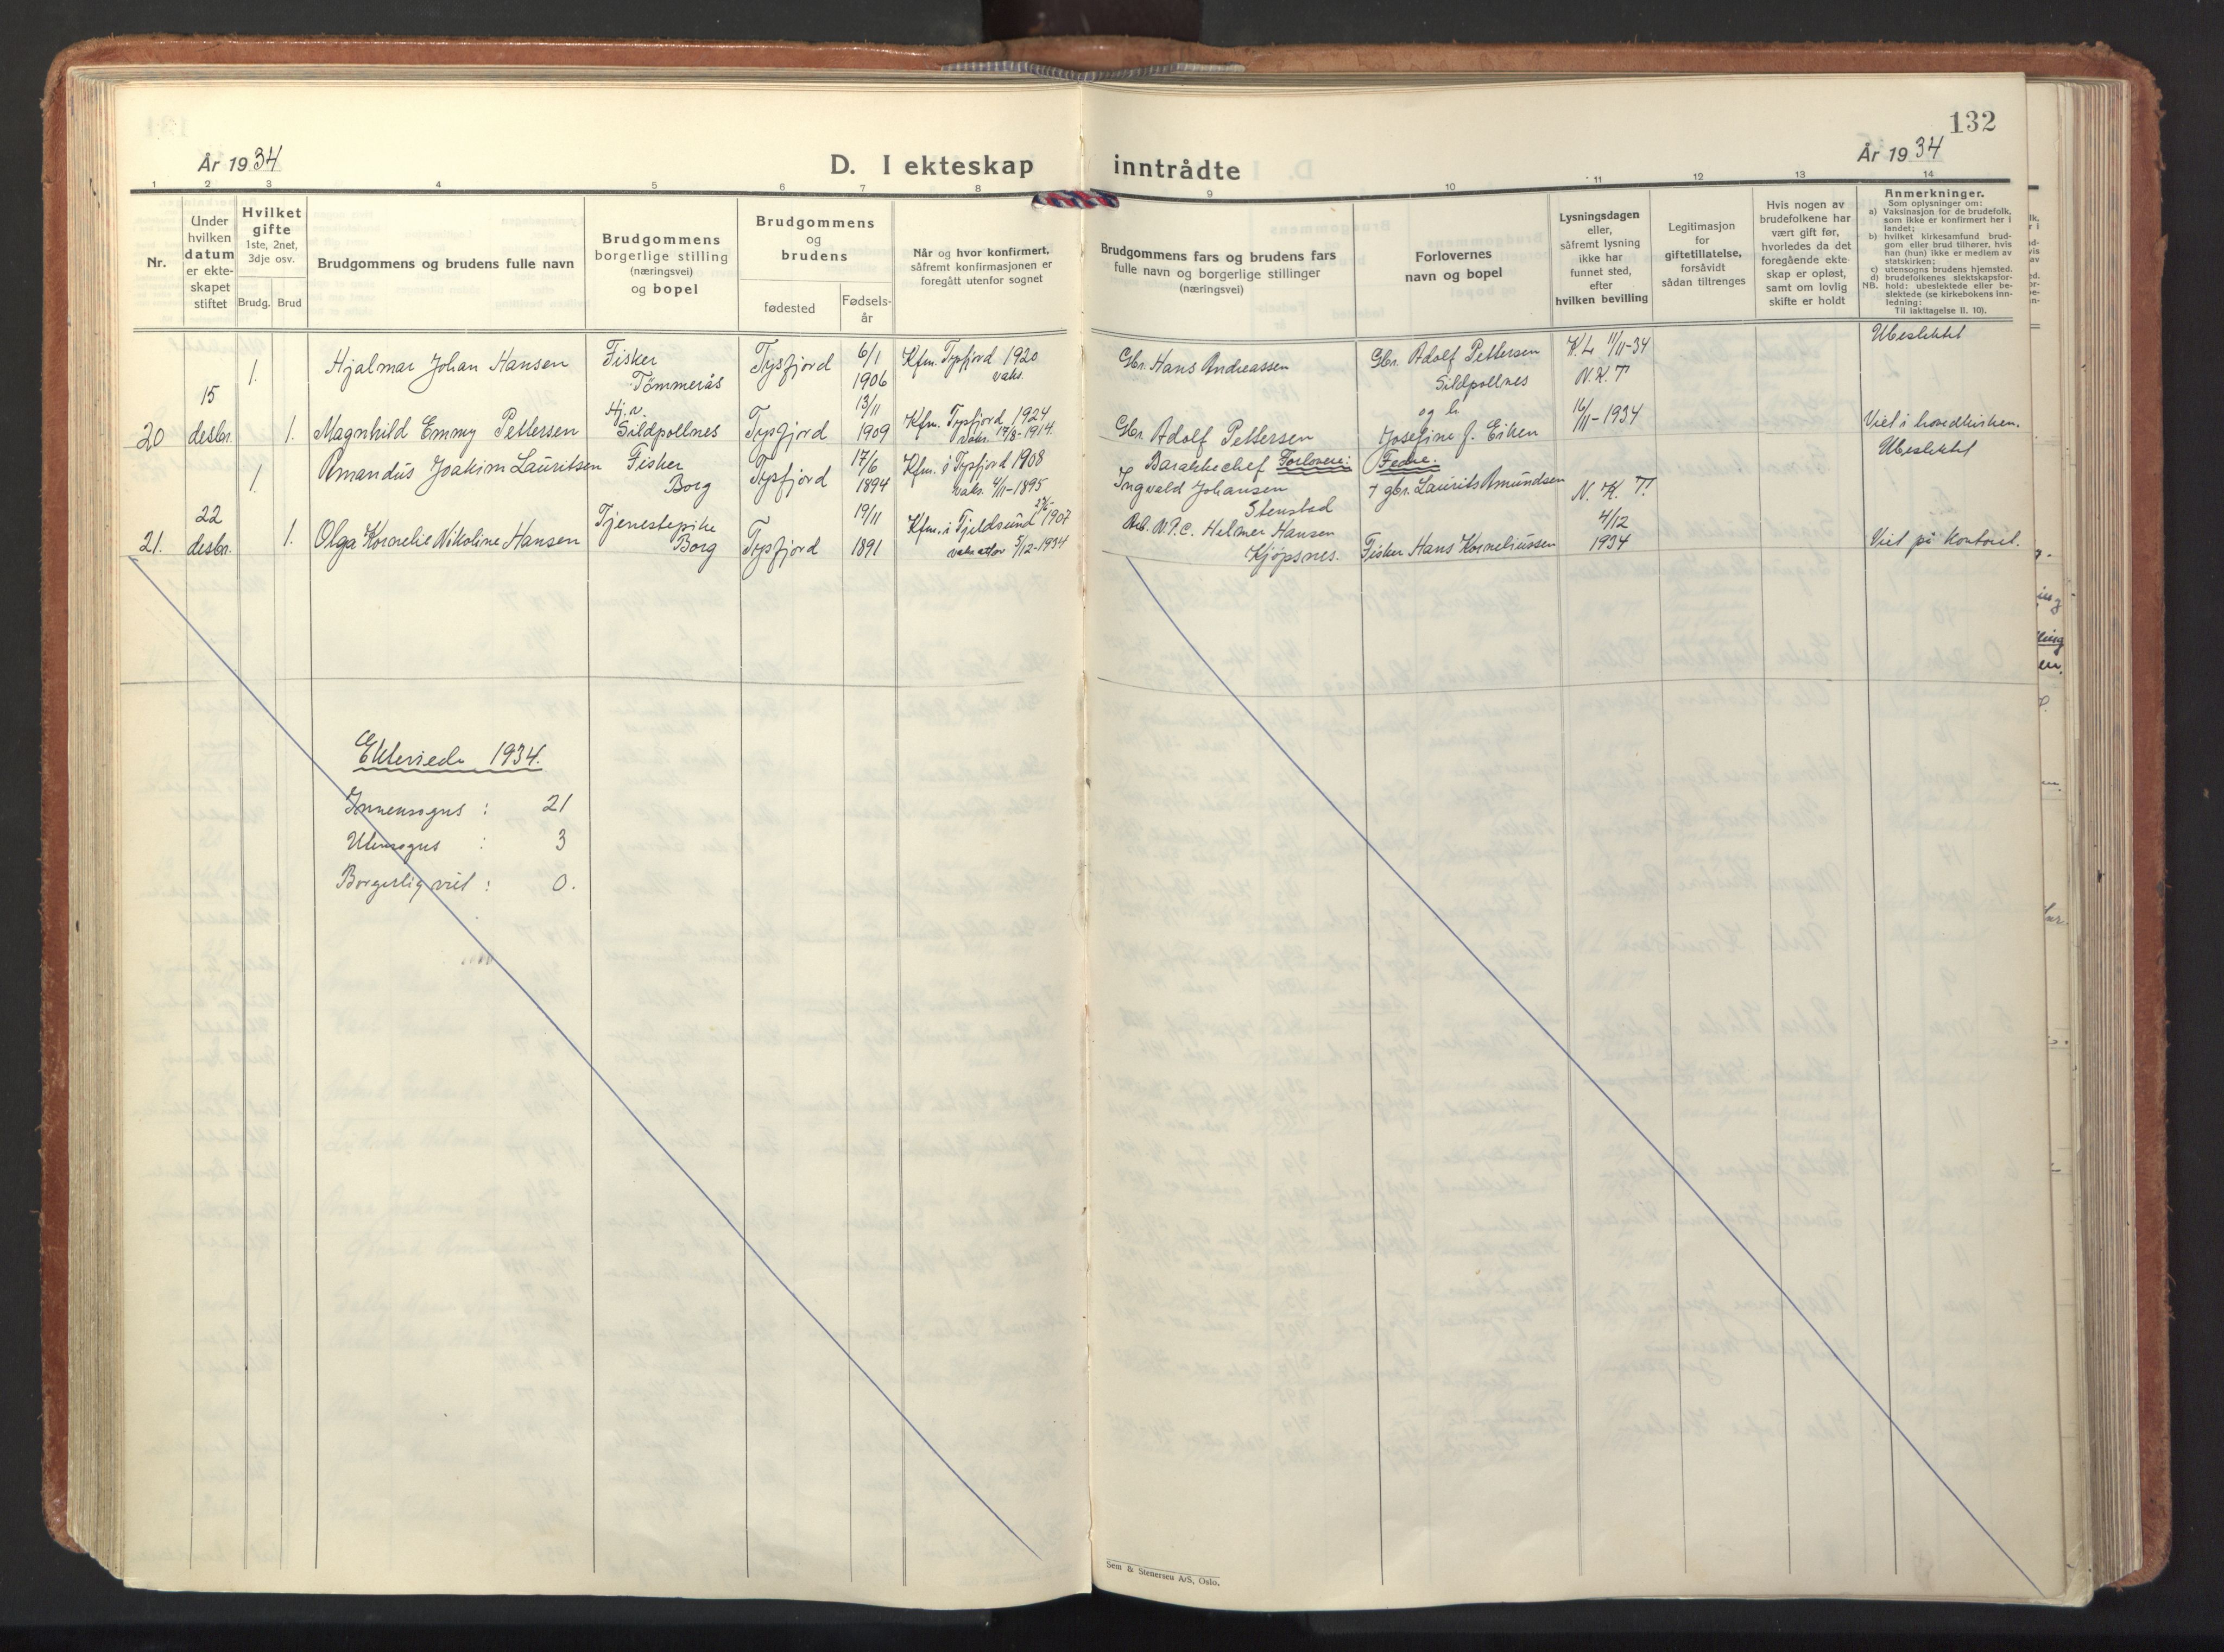 132
År 1934
D. I ekteskap inntrådte
År 1934
1 2 3 4 5 6 7 8 9 10 11 12 13 14
Nr.
Under
hvilken
datum
er ekte-
skapet
stiftet
Hvilket
gifte
1ste, 2net,
3dje osv.
Brudg. Brud
Brudgommens og brudens fulle navn
Brudgommens
borgerlige stilling
(næringsvei)
og bopel
Brudgommens
og
brudens
fødested
Fødsels-
år
Når og hvor konfirmert,
såfremt konfirmasjonen er
foregått utenfor sognet
Brudgommens fars og brudens fars
fulle navn og borgerlige stillinger
(næringsvei)
Forlovernes
navn og bopel
Lysningsdagen
eller,
såfremt lysning
ikke har
funnet sted,
efter
hvilken bevilling
Legitimasjon
for
giftetillatelse,
forsåvidt
sådan tiltrenges
Hvis nogen av
brudefolkene har
vært gift før,
hvorledes da det
foregående ekte-
skap er opløst,
samt om lovlig
skifte er holdt
Anmerkninger.
Som oplysninger om:
a) Vaksinasjon for de brudefolk,
som ikke er konfirmert her i
landet;
b) hvilket kirkesamfund brud-
gom eller brud tilhører, hvis
han (hun) ikke er medlem av
statskirken;
c) utensogns brudens hjemsted.
d) brudefolkenes slektskapsfor-
NB. hold: ubeslektede eller be-
slektede (se kirkebokens inn-
ledning:
Til iakttagelse II. 10).
20
15
desbr.
1.
Hjalmar Johan Hansen
Fisker
Tömmerås
Tysfjord
6/1
1906
Kfm. Tysfjord 1920
vaks.
Gbr. Hans Andreassen
Gbr. Adolf Pettersen
Sildpollnes
K.L. 11/11-34
N.K.T
Ubeslektet
1.
Magnhild Emmy Pettersen
Hj.v.
Sildpollnes
Tysfjord
13/11
1909
Kfm. Tysfjord 1924
vaks. 17/8-1914.
Gbr. Adolf Pettersen
og h.
Josefine J. Eiken
16/11-1934
Viet i hovedkirken.
21.
22
desbr.
1.
Amandus Joakim Lauritsen
Fisker
Borg
Tysfjord
17/6
1894
Kfm. i Tysfjord 1908
vaks. 4/11-1895
Barakkechef Forlovere: Fedre.
Ingvald Johansen
Stenstad
† gbr. Laurits Amundsen
N.K.T.
Ubeslektet
1.
Olga Kornelie Nikoline Hansen
Tjenestepike
Borg
Tysfjord
19/11
1891
Kfm. i Tjeldsund 1907
vaks.attor 5/12-1934
Arb. N.P.C. Helmer Hansen
Kjöpsnes.
Fisker Hans Korneliussen
4/12
1934
Viet på kontoret.
Ekteviede 1934.
Innensogns : 21
Utensogns : 3
Borgerlig viet : 0.
Sem & Stenersen A/S, Oslo.